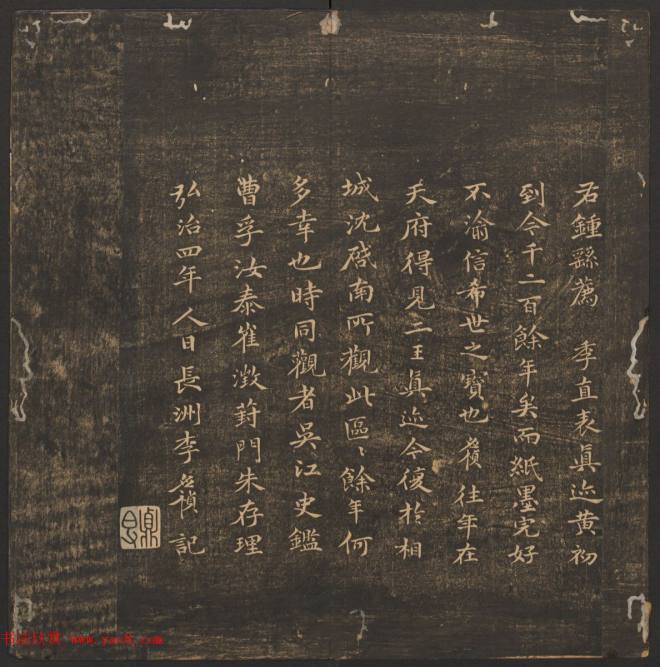 右鍾繇薦季直表真迹黄初
到今千二百餘年矣而紙墨完好
不渝信希世之寶也獲往年在
天府得見二王真迹今復於相
城沈啓南所觀此區區餘年何
多幸也時同觀者吳江史鑑
曹孚汝泰崔澂葑門朱存理
弘治四年人日長洲李應禎記